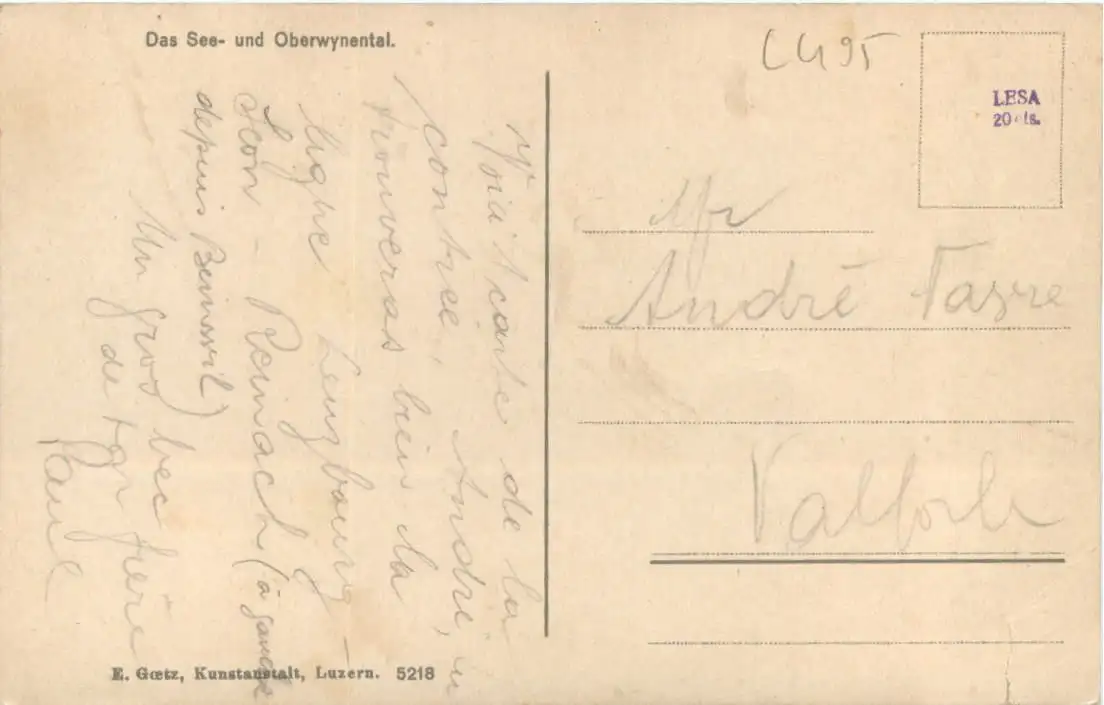 Das See- und Oberwynental.
LESA
20 cts.
Voia't carte de la
contrée, André, tu
trouveras bien la
ligne Lenzbourg -
- Reinach (à gauche
depuis Beinwil)
Un gros bec
de ton frère
Paul
Mr
André Favre
E. Gœtz, Kunstanstalt, Luzern. 5218